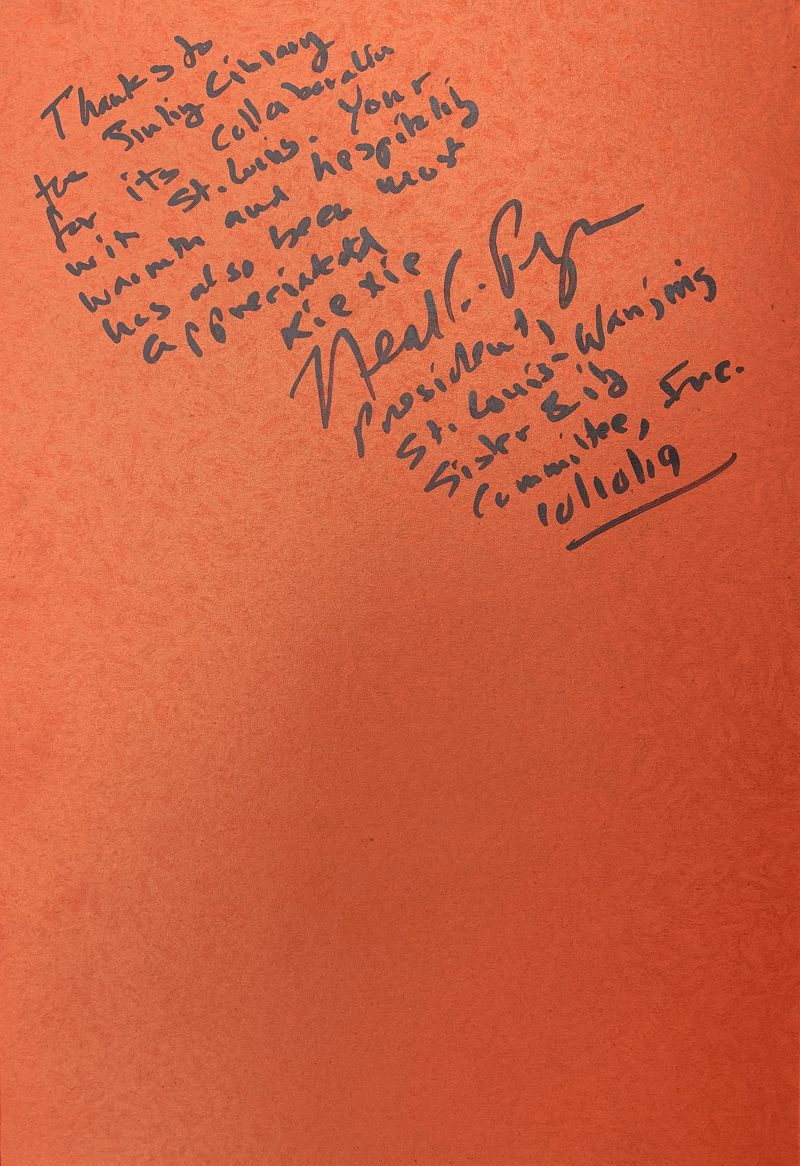 Thanks to
the Jinling Library
for its collaboration
with St. Louis. Your
warmth and hospitality
has also been most
appreciated
Xie Xie
Neal
President,
St. Louis-Nanjing
Sister City
Committee, Inc.
10/10/19